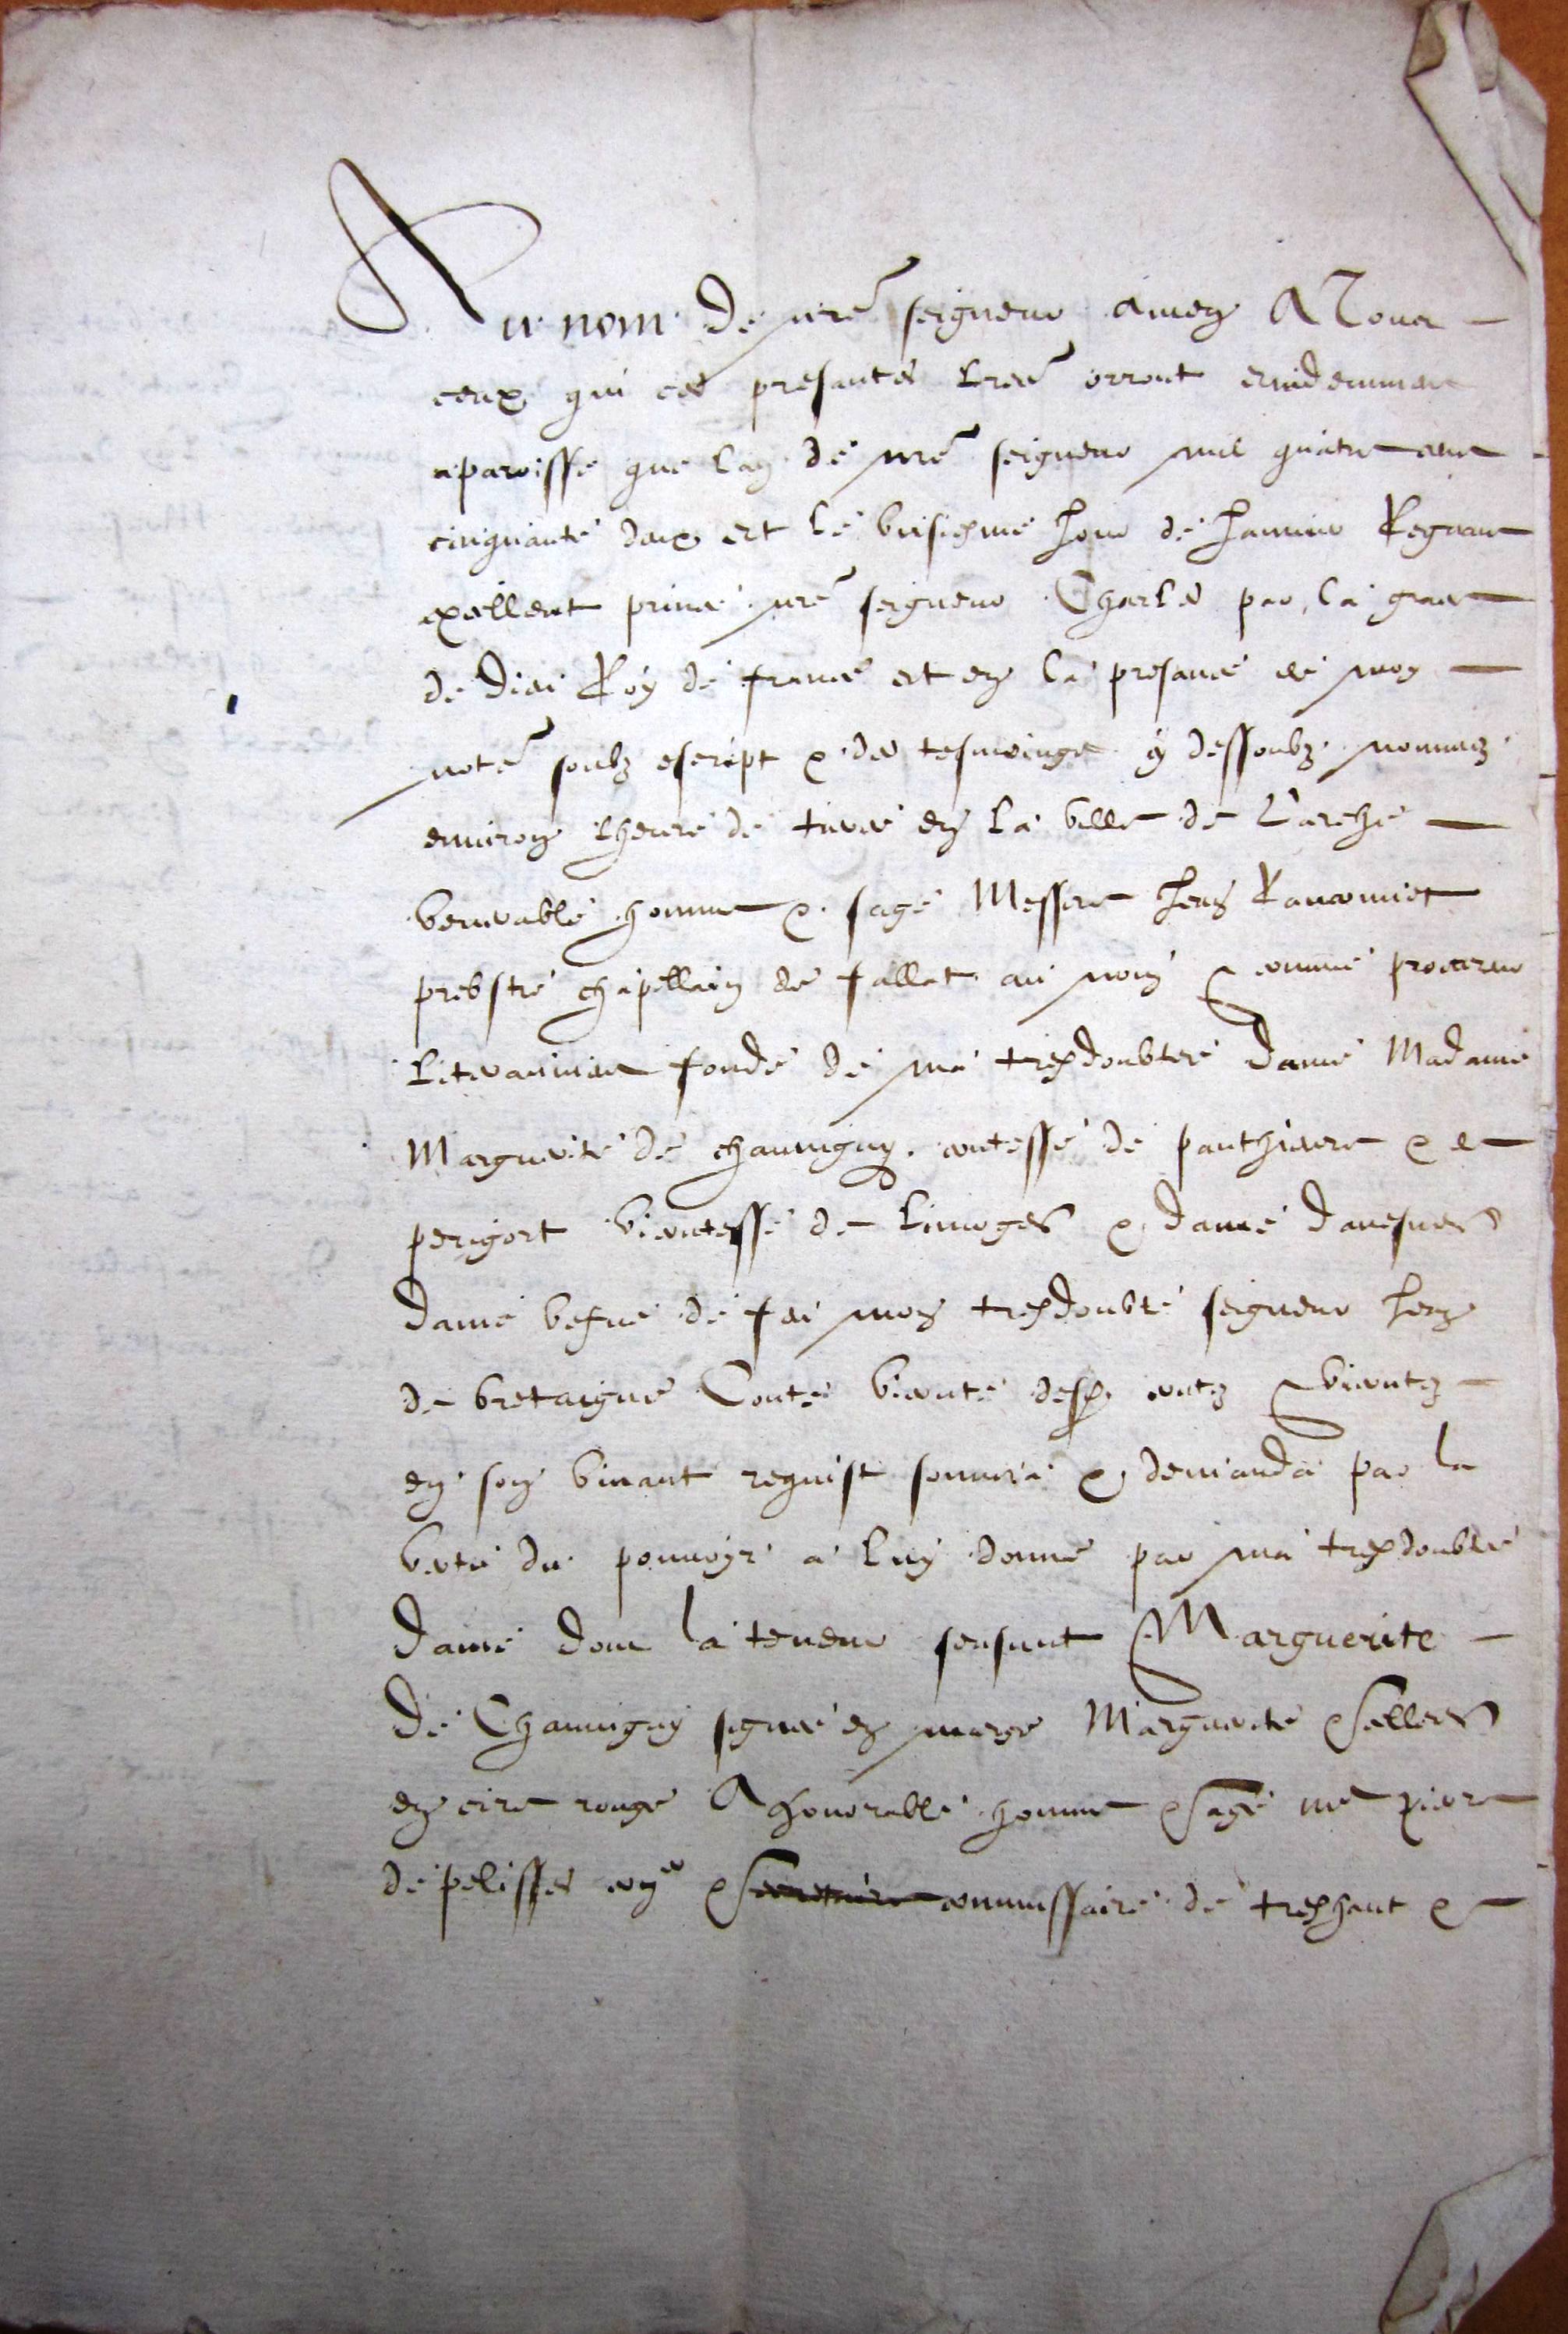 Au nom de nre seigneur amen A Tous
ceux qui ces presantes lres orront evidemment
aparoisse que lan de nre seigneur mil quatre cens
cinquante deux et le huisiesme Jour de Janvier Regnant
exellent prince nre seigneur Charles par la grace
de dieu Roy de france et en la presance de moy
note soubz escript & des tesmoings cy dessoubz nommez
environ lheure de tierce en la ville de Larche
venerable homme & sage Messere Jean
prebstre chapellain de fallet au nom & comme procureur
literaument fonde de ma tresdoubtee dame Madame
Marguerite de chauvigny contesse de panthievre & de
perigort vicontesse de Limoges & dame davesnes
dame vefve de feu mon tresdoubte seigneur Jean
de bretaigne Conte viconte desd contez & vicontez
en son vivant requist somma & demanda par la
vertu du pouvoyr a luy donne par ma tresdoubtee
dame dont la teneur sensuit Marguerite
de Chauvigny signee en marge Marguerite & sellees
en cire rouge A honorable homme & sage me pierre
de pelisses & Secretaire commissaire de treshaut &